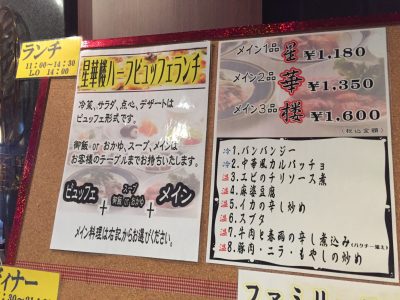 ランチ
11:00～14:30
LO 14:00
星華楼ハーフビュッフェランチ
冷菜、サラダ、点心、デザートは
ビュッフェ形式です。
御飯 or おかゆ、スープ、メインは
お客様のテーブルまでお持ちいたします。
ビュッフェ + スープ 御飯 or おかゆ + メイン
メイン料理は右記からお選びください。
メイン1品 星 ¥1,180
メイン2品 華 ¥1,350
メイン3品 楼 ¥1,600
(税込金額)
冷 1. バンバンジー
冷 2. 中華風カルパッチョ
温 3. エビのチリソース煮
温 4. 麻婆豆腐
温 5. イカの辛し炒め
温 6. スブタ
温 7. 牛肉と春雨の辛し煮込み(パクチー添え)
温 8. 豚肉・ニラ・もやしの炒め
ディナー
ファミリー